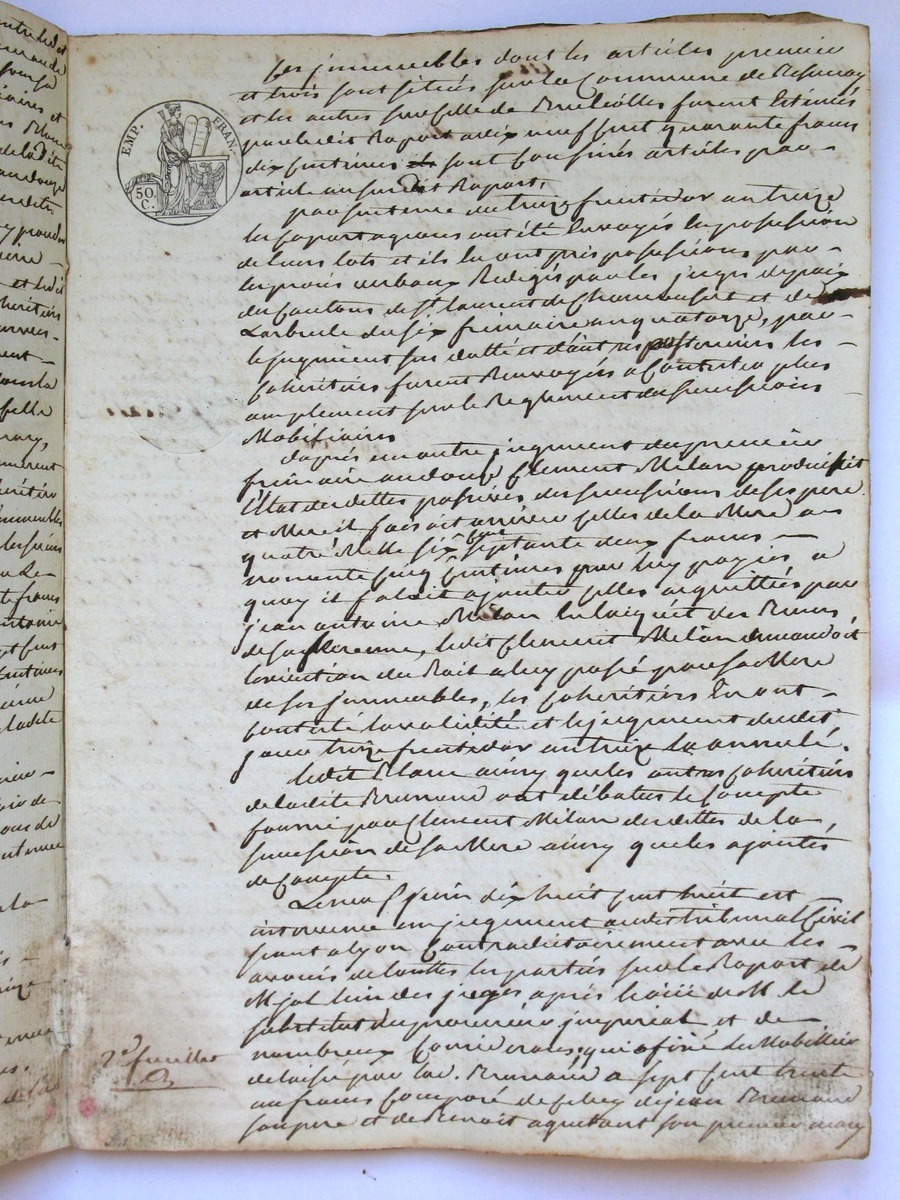 EMP. FRAN.
50 C.
Les jmmeubles dont les articles premier
et trois sont situés sur la Commune de
et les autres sur celle de furent Estimés
par le dit Raport a dix neuf Cent quarante francs
dix Centimes sont Confinés articles par
article au susdit Raport,
par sentence du treize fructidor an treize
les Copartageans ont été Envoyés En possession
de leurs lots et ils En ont pris possessions par
les procès verbaux Redigés par les juges de paix
des Cantons de St. laurent de Chamousset et de
Larbresle du six frimaire an quatorze, par
le jugement sus datté et d'autres posterieurs les
Coheritiers furent Renvoyés a Contester plus
amplement sur le Reglement des successions
Mobiliaires
d'après un autre jugement du premier
frimaire an douze Clement Milan produisit
l'Etat des dettes passives des successions de ses pere
et Mere il faisoit arriver Celles de la Mere a
quatre Mille six Cent septante deux francs
nonante Cinq Centimes par luy payés a
quoy il falait ajouter Celles acquittées par
jean antoine Milan
de sa Mere, ledit Clement Milan demandoit
l'execution du Bail a luy passé par sa Mere
de ses jmmeubles, les Coheritiers En ont
Contesté la validité et le jugement dudit
jour treize fructidor an treize la annulé.
ledit Blanc ainsy que les autres Coheritiers
de ladite Brunand ont débatus le Compte
fourni par Clement Milan des dettes de la
succession de sa Mere ainsy que les ajoutés
de Compte.
Le neuf juin dix huit Cent huit est
intervenu un jugement audit tribunal Civil
séant a lyon Contradictoirement avec les
avoués de touttes les parties sur le Raport de
M. jal l'un des juges après ouïe de M. le
substitut du procureur jmperial et de
nombreux Considerants, qui a fixé le Mobillier
delaissé par lad. Brunand a sept Cent trente
un francs Composé de Celuy de jean Brunand
son pere et de Benoit son premier mary
2e feuillet